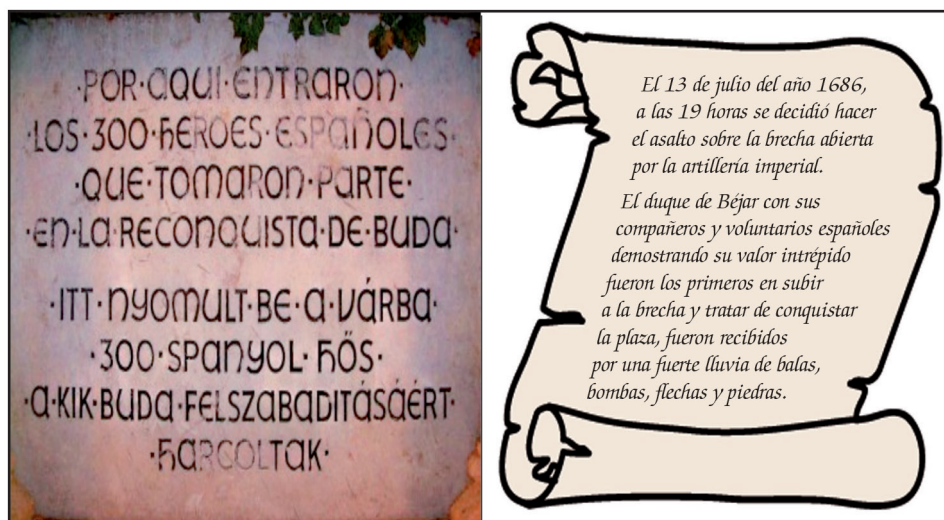 ·POR·AQUI·ENTRARON·
·LOS·300·HEROES·ESPAÑOLES·
·QUE·TOMARON·PARTE·
·EN·LA·RECONQUISTA·DE·BUDA·
·ITT·NYOMULT·BE·A·VÁRBA·
·300·SPANYOL·HŐS·
·A·KIK·BUDA·FELSZABADITÁSÁÉRT·
·HARCOLTAK·
El 13 de julio del año 1686,
a las 19 horas se decidió hacer
el asalto sobre la brecha abierta
por la artillería imperial.
El duque de Béjar con sus
compañeros y voluntarios españoles
demostrando su valor intrépido
fueron los primeros en subir
a la brecha y tratar de conquistar
la plaza, fueron recibidos
por una fuerte lluvia de balas,
bombas, flechas y piedras.